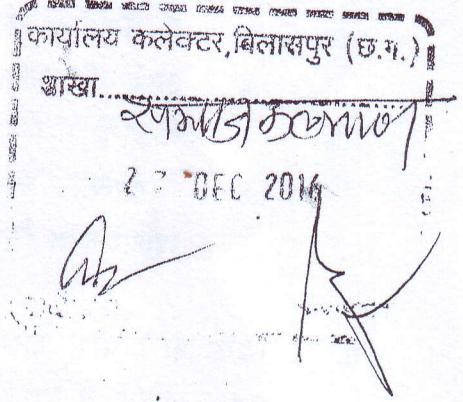 कार्यालय कलेक्टर,बिलासपुर (छ.ग.)
शाखा......................
समाज कल्याण
DEC 2014